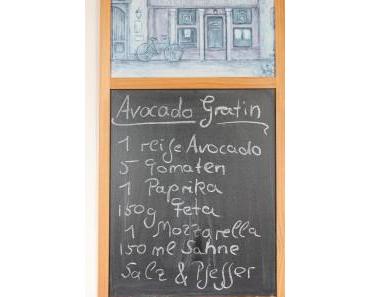 Avocado Gratin
1 reife Avocado
5 Tomaten
1 Paprika
150g Feta
1 Mozzarella
150 ml Sahne
Salz & Pfeffer